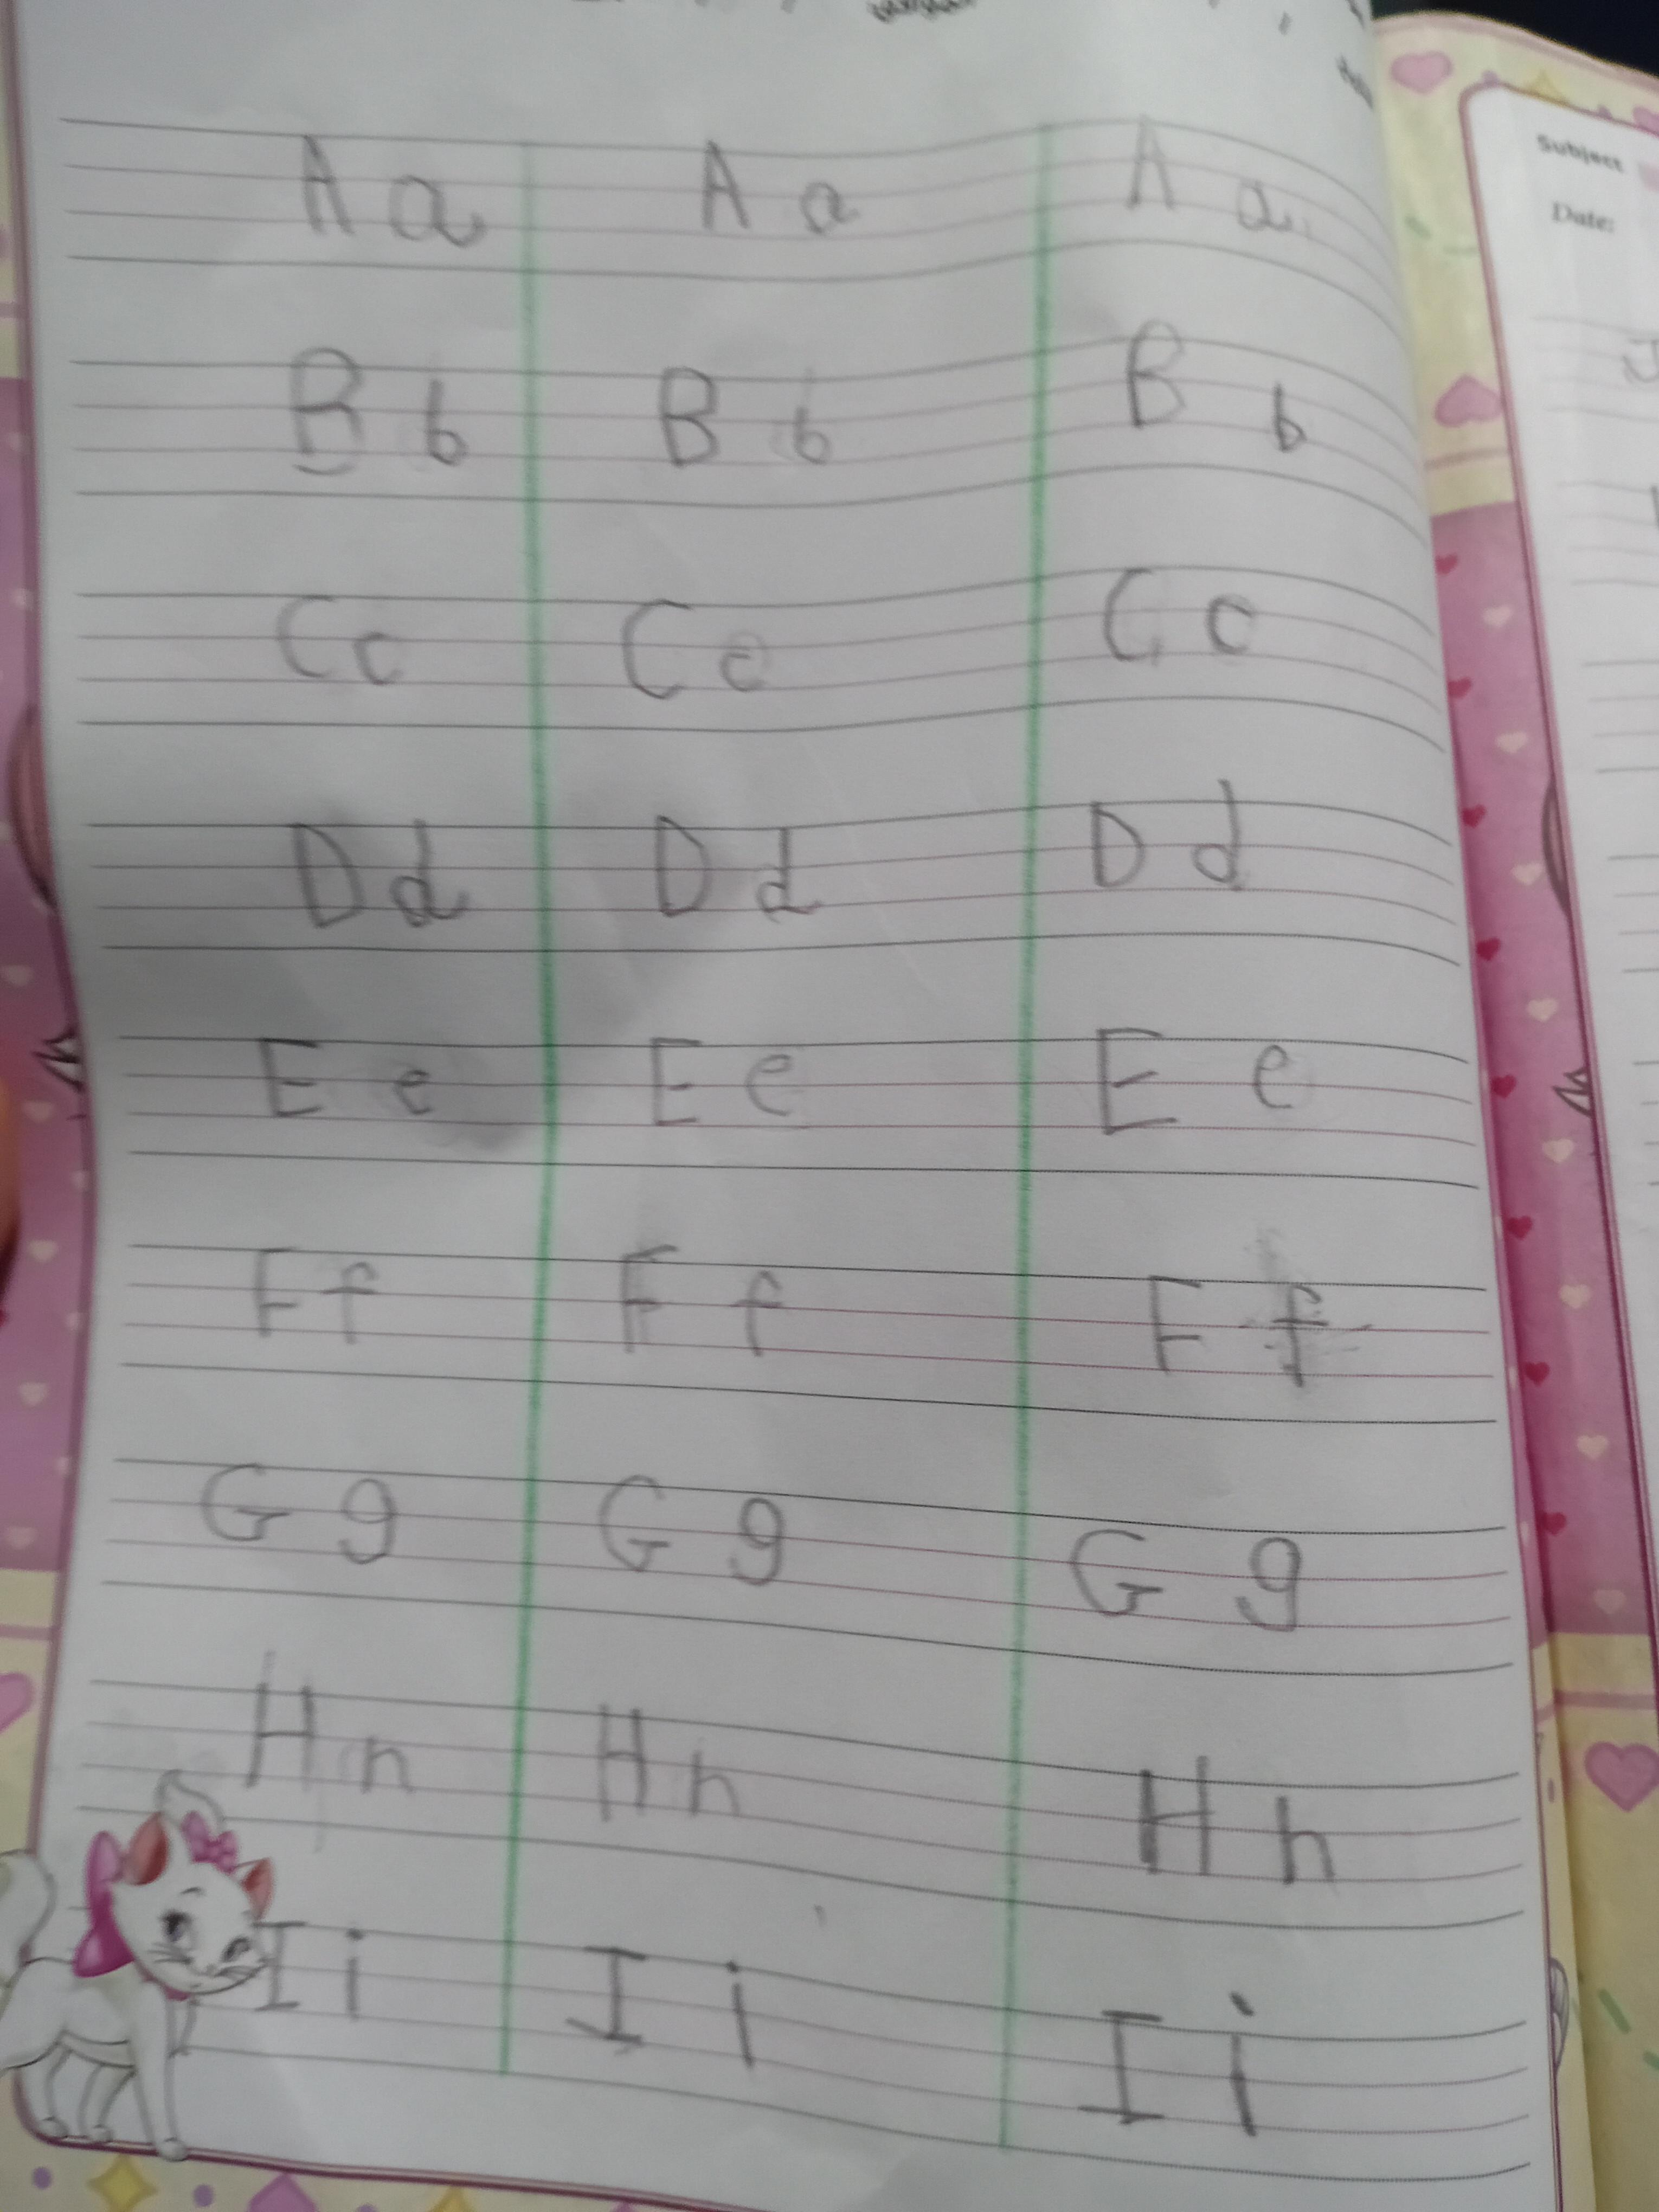 A a A a A a
B b B b B b
C c C c C c
D d D d D d
E e E e E e
F f F f F f
G g G g G g
H h H h H h
I i I i I i
Subject
Date:
J